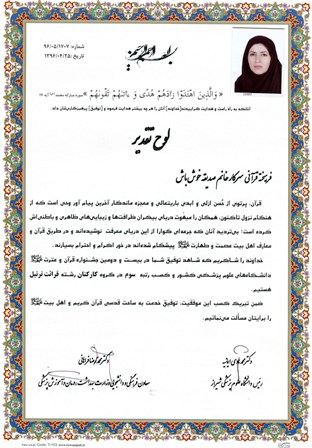 بسم الله الرحمن الرحیم
شماره: ۹۶/۰۵/۱۷۰۷
تاریخ: ۱۳۹۶/۰۴/۲۵
« وَالَّذِینَ اهْتَدَوْا زَادَهُمْ هُدًى وَ آتَاهُمْ تَقْواهُمْ »
لوح تقدیر
فرهیخته قرآنی سرکار خانم صدیقه خوش باش
قرآن، پرتوی از حُسن ازلی و ابدی باریتعالی و معجزه ماندگار آخرین پیام آور وحی است که از
هنگام نزول تاکنون، همگان را مبهوت دریای بیکران ظرافت‌ها و زیبایی‌های ظاهری و باطنی‌اش
کرده است؛ بی‌تردید آنان که جرعه‌ای گوارا از این دریای معرفت نوشیده‌اند و در طریق قرآن و
معارف اهل بیت عصمت و طهارت پیشگام شده‌اند در خور اکرام و احترام بسیارند.
خداوند را شاکریم که شاهد توفیق شما در بیست و دومین جشنواره قرآن و عترت
دانشگاه‌های علوم پزشکی کشور و کسب رتبه سوم در گروه کارکنان رشته قرائت ترتیل
هستیم.
ضمن تبریک کسب این موفقیت، توفیق خدمت به ساحت قدسی قرآن کریم و اهل بیت
را برایتان مسألت می‌نمائیم.
دکتر محمدرضا فراهانی
معاون فرهنگی و دانشجویی وزارت بهداشت، درمان و آموزش پزشکی
دکتر محمد هادی ایمانیه
رئیس دانشگاه علوم پزشکی شیراز